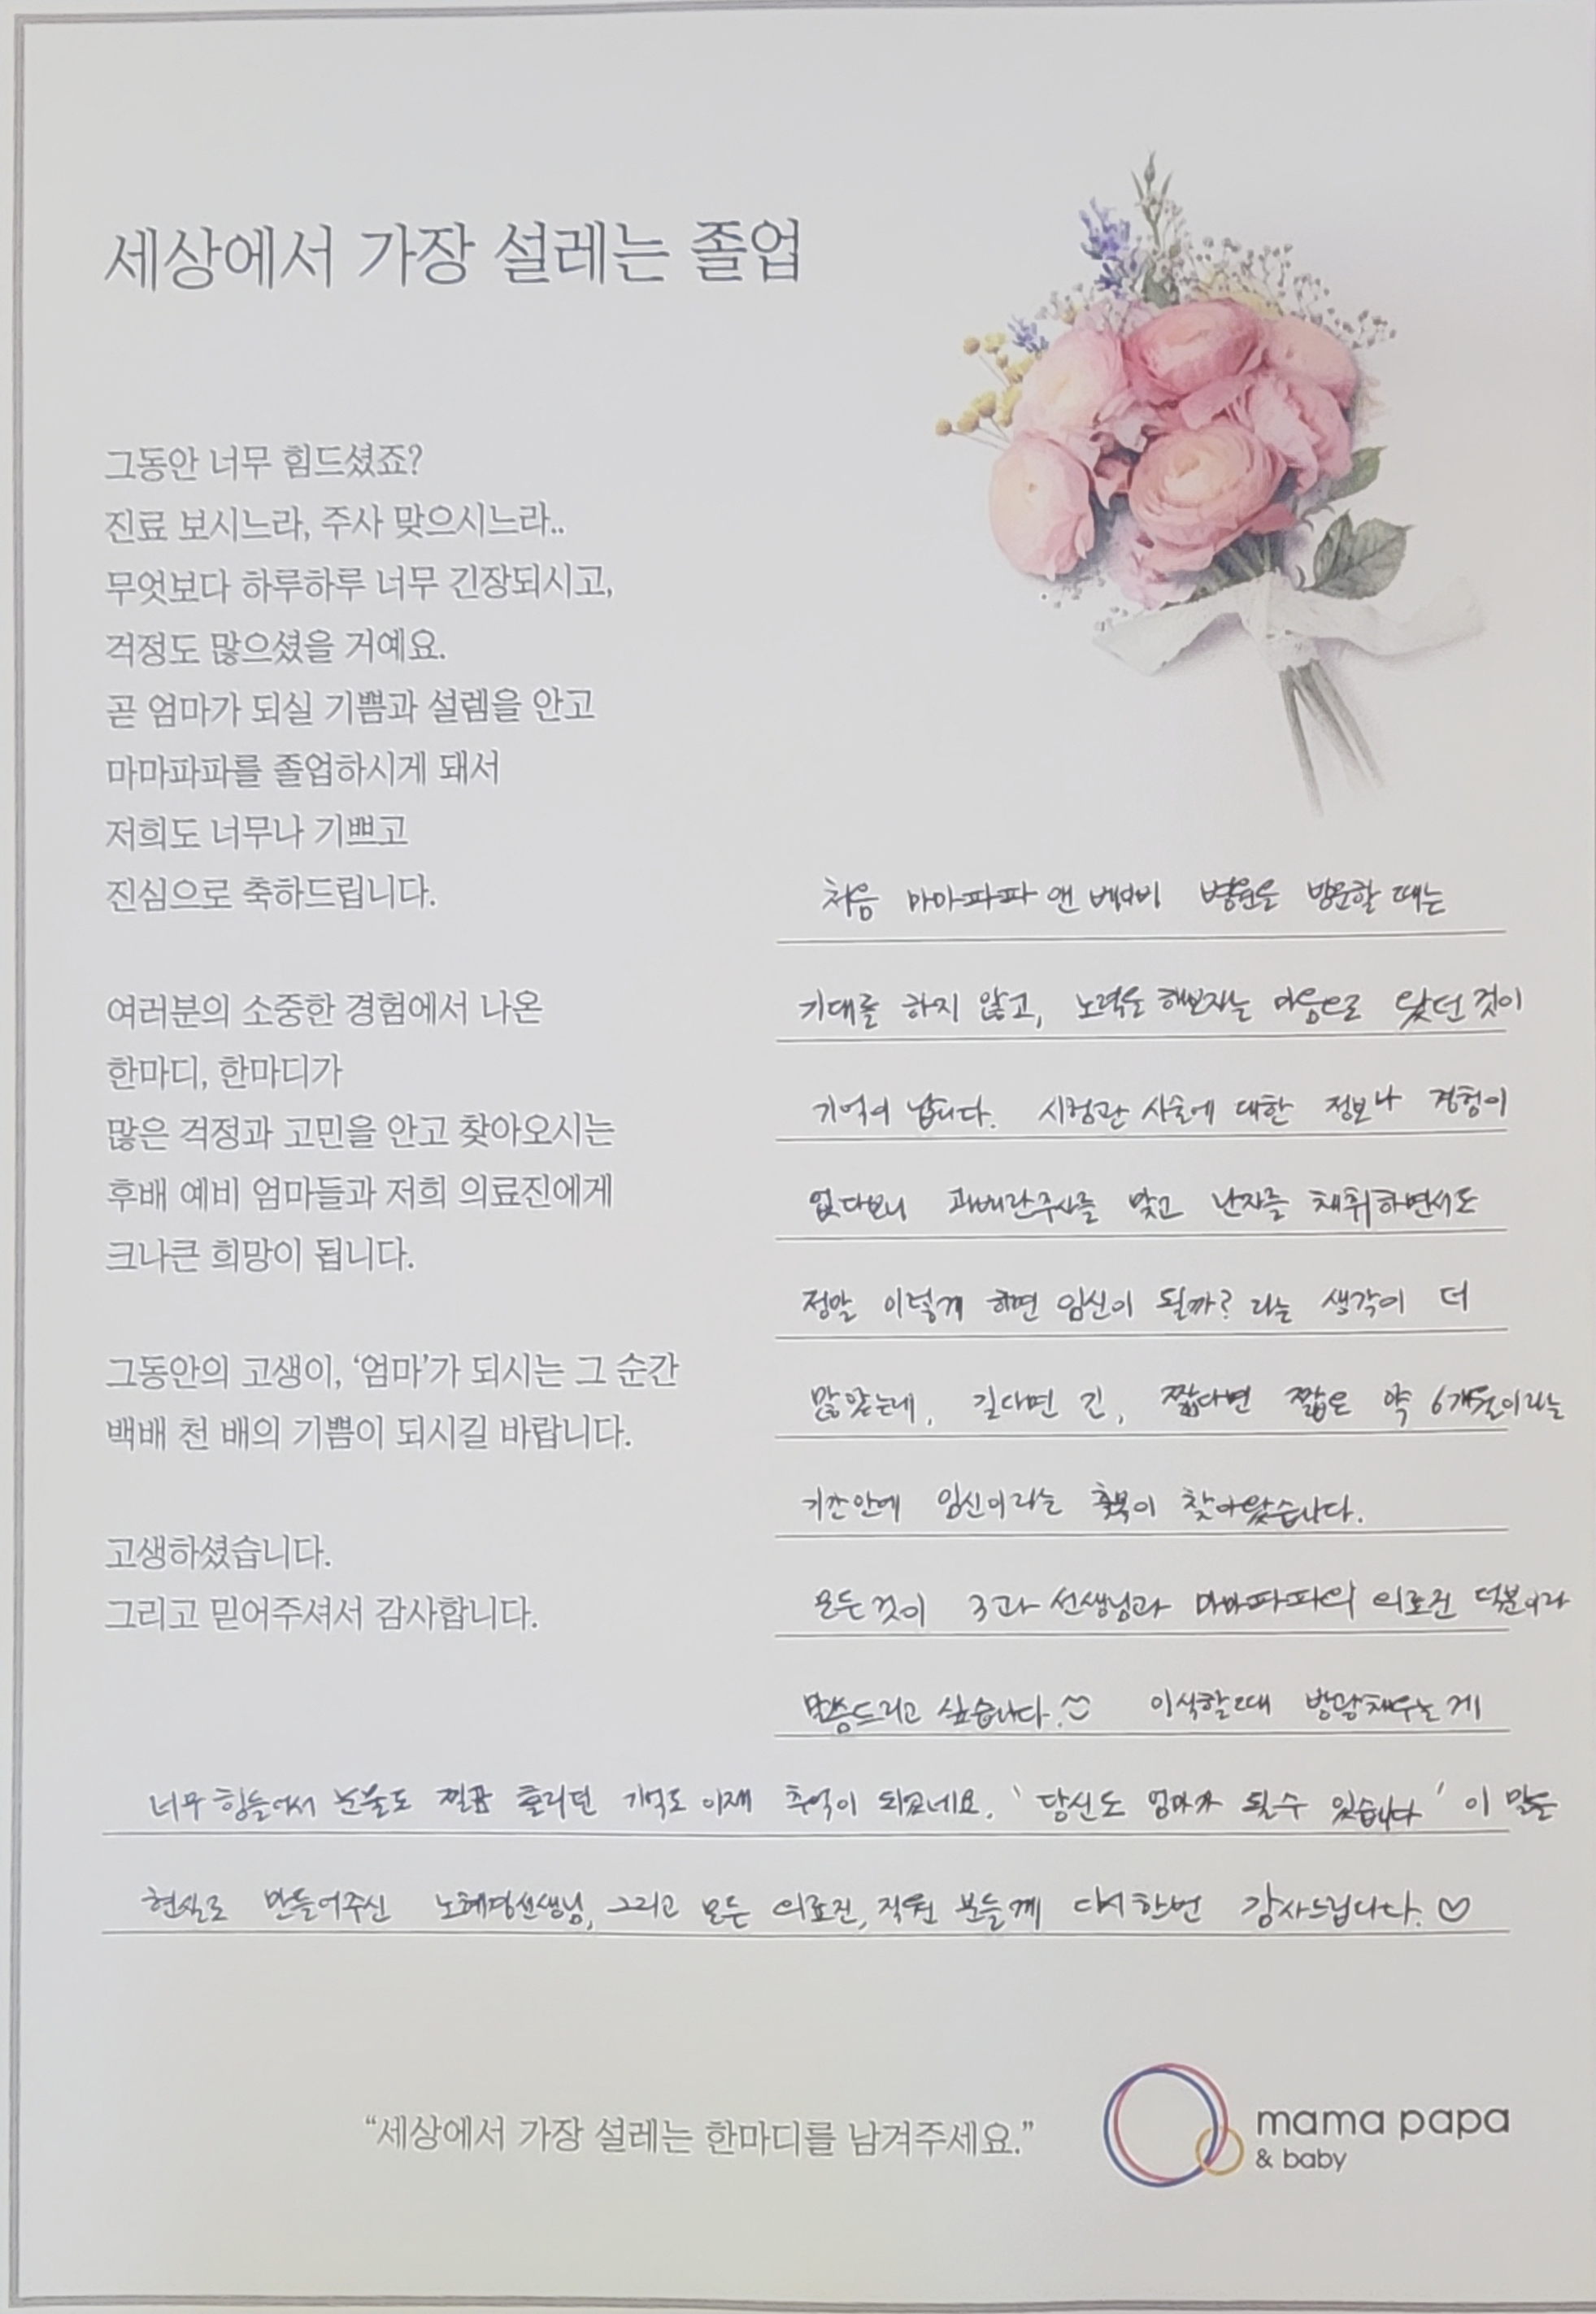 세상에서 가장 설레는 졸업
그동안 너무 힘드셨죠?
진료 보시느라, 주사 맞으시느라..
무엇보다 하루하루 너무 긴장되시고,
걱정도 많으셨을 거예요.
곧 엄마가 되실 기쁨과 설렘을 안고
마마파파를 졸업하시게 돼서
저희도 너무나 기쁘고
진심으로 축하드립니다.
여러분의 소중한 경험에서 나온
한마디, 한마디가
많은 걱정과 고민을 안고 찾아오시는
후배 예비 엄마들과 저희 의료진에게
크나큰 희망이 됩니다.
그동안의 고생이, ‘엄마’가 되시는 그 순간
백배 천 배의 기쁨이 되시길 바랍니다.
고생하셨습니다.
그리고 믿어주셔서 감사합니다.
처음 마마파파 앤 베이비 병원을 방문할 때는
기대를 하지 않고, 노력을 해보자는 마음으로 왔던 것이
기억이 납니다. 시험관 시술에 대한 정보나 경험이
없다보니 과배란주사를 맞고 난자를 채취하면서도
정말 이렇게 하면 임신이 될까? 라는 생각이 더
많았는데, 길다면 긴, 짧다면 짧은 약 6개월이라는
기간안에 임신이라는 축복이 찾아왔습니다.
모든것이 3과 선생님과 마마파파의 의료진 덕분이라
말씀드리고 싶습니다. 이식할때 방광채우는게
너무 힘들어서 눈물도 찔끔 흘리던 기억도 이제 추억이 되겠네요. '당신도 엄마가 될수 있습니다' 이 말을
현실로 만들어주신 노혜경선생님, 그리고 모든 의료진, 직원 분들께 다시한번 감사드립니다. ♡
“세상에서 가장 설레는 한마디를 남겨주세요.”
mama papa
& baby